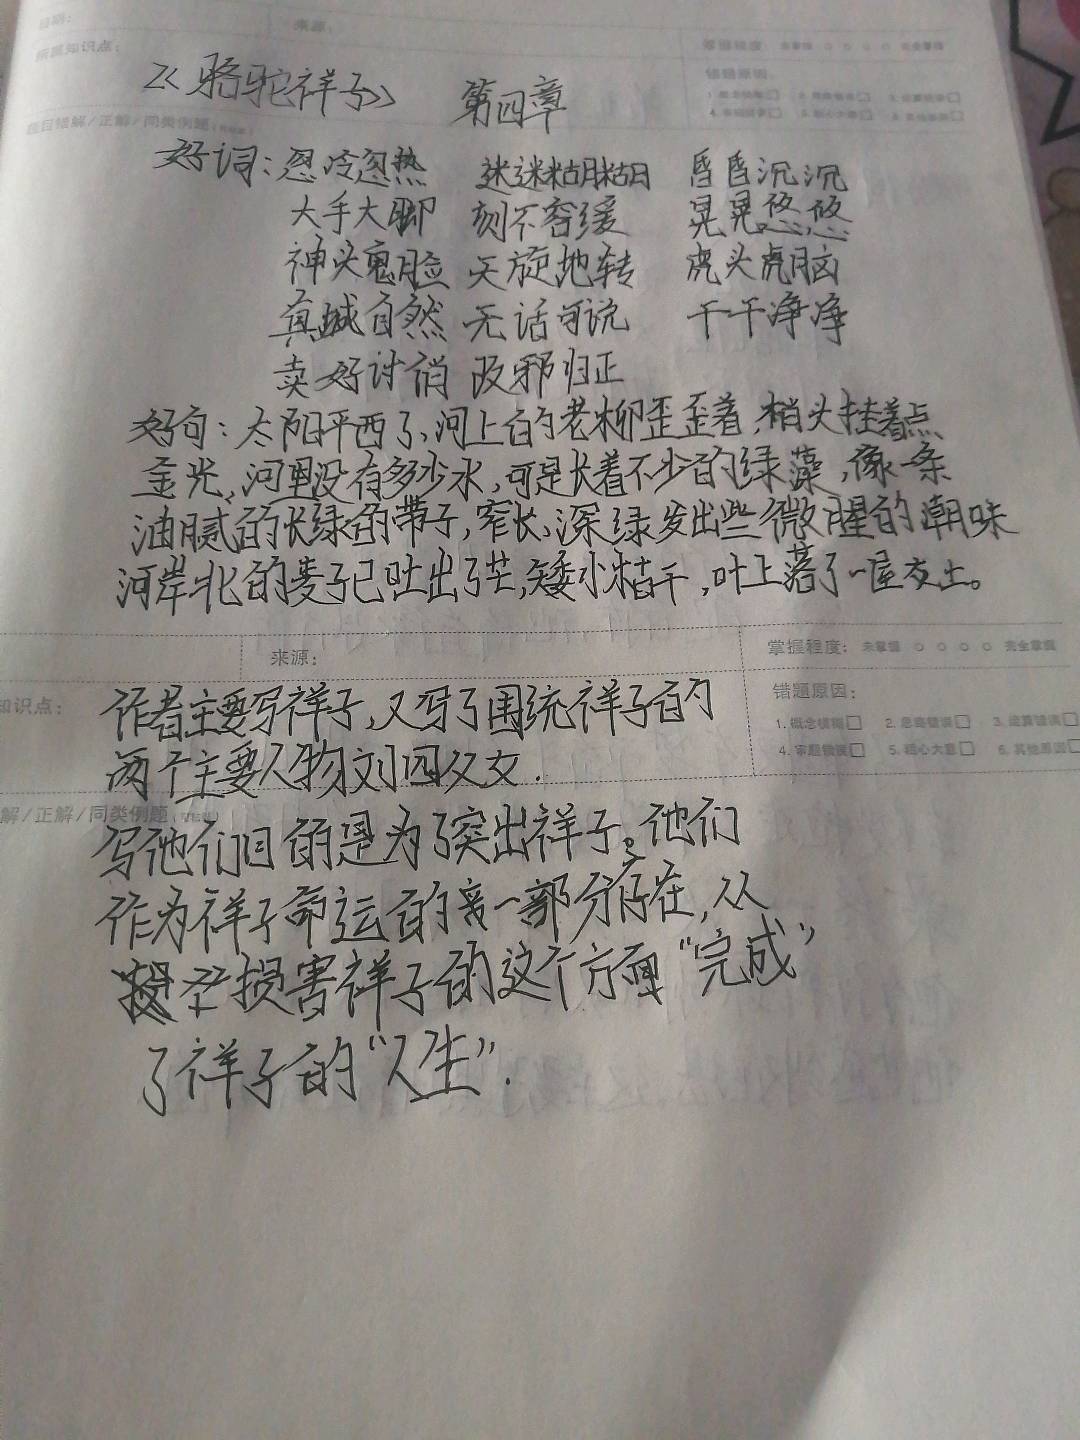 日期：
来源：
所属知识点：
掌握程度：未掌握 ○ ○ ○ ○ 完全掌握
错题原因：
题目错解/正解/同类例题
《骆驼祥子》 第四章
好词：忽冷忽热 迷迷糊糊 昏昏沉沉
大手大脚 刻不容缓 晃晃悠悠
神头鬼脸 天旋地转 虎头虎脑
真诚自然 无话可说 干干净净
卖好讨俏 改邪归正
好句：太阳平西了，河上的老柳歪歪着，梢头挂着点
金光，河里没有多少水，可是长着不少的绿藻，像一条
油腻的长绿的带子，窄长，深绿发出些微腥的潮味
河岸北的麦子已吐出了芒，矮小枯干，叶上落了一层灰土。
来源：
掌握程度：未掌握 ○ ○ ○ ○ 完全掌握
知识点：
错题原因：
1. 概念模糊□ 2. 思路错误□ 3. 运算错误□
4. 审题错误□ 5. 粗心大意□ 6. 其他原因□
解/正解/同类例题
作者主要写祥子，又写了围统祥子的
两个主要人物刘四父女.
写他们目的是为了突出祥子。他们
作为祥子命运的一部分存在，从
损害祥子的这个方面“完成”
了祥子的“人生”.